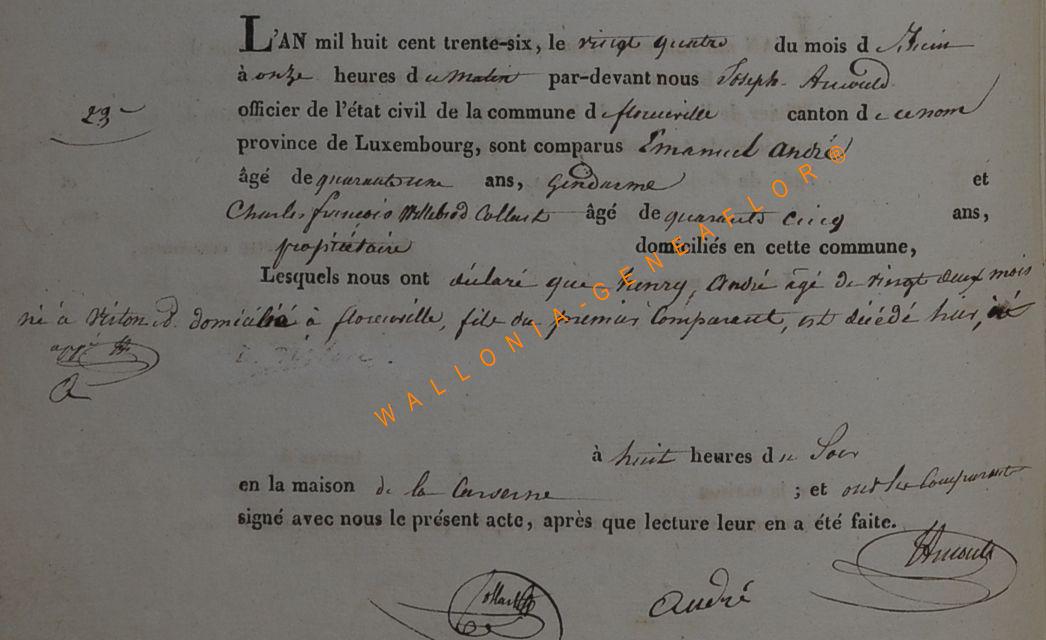 L'AN mil huit cent trente-six, le vingt quatre du mois de Juin
à onze heures du matin par-devant nous Joseph Arnould
officier de l'état civil de la commune de florenville canton de ce nom
23
province de Luxembourg, sont comparus Emanuel André
âgé de quarante une ans, Gendarme et
Charles françois Willebrod Collart âgé de quarante cinq ans,
propriétaire domiciliés en cette commune,
Lesquels nous ont déclaré que henry, André âgé de vingt deux mois
né à Virton domicilié à florenville, fils du premier Comparant, est décédé hier,
app
A
à huit heures du Soir
en la maison de la Caserne ; et ont les Comparants
signé avec nous le présent acte, après que lecture leur en a été faite.
Arnould
Collart
André
WALLONIA-GENEAFLOR®